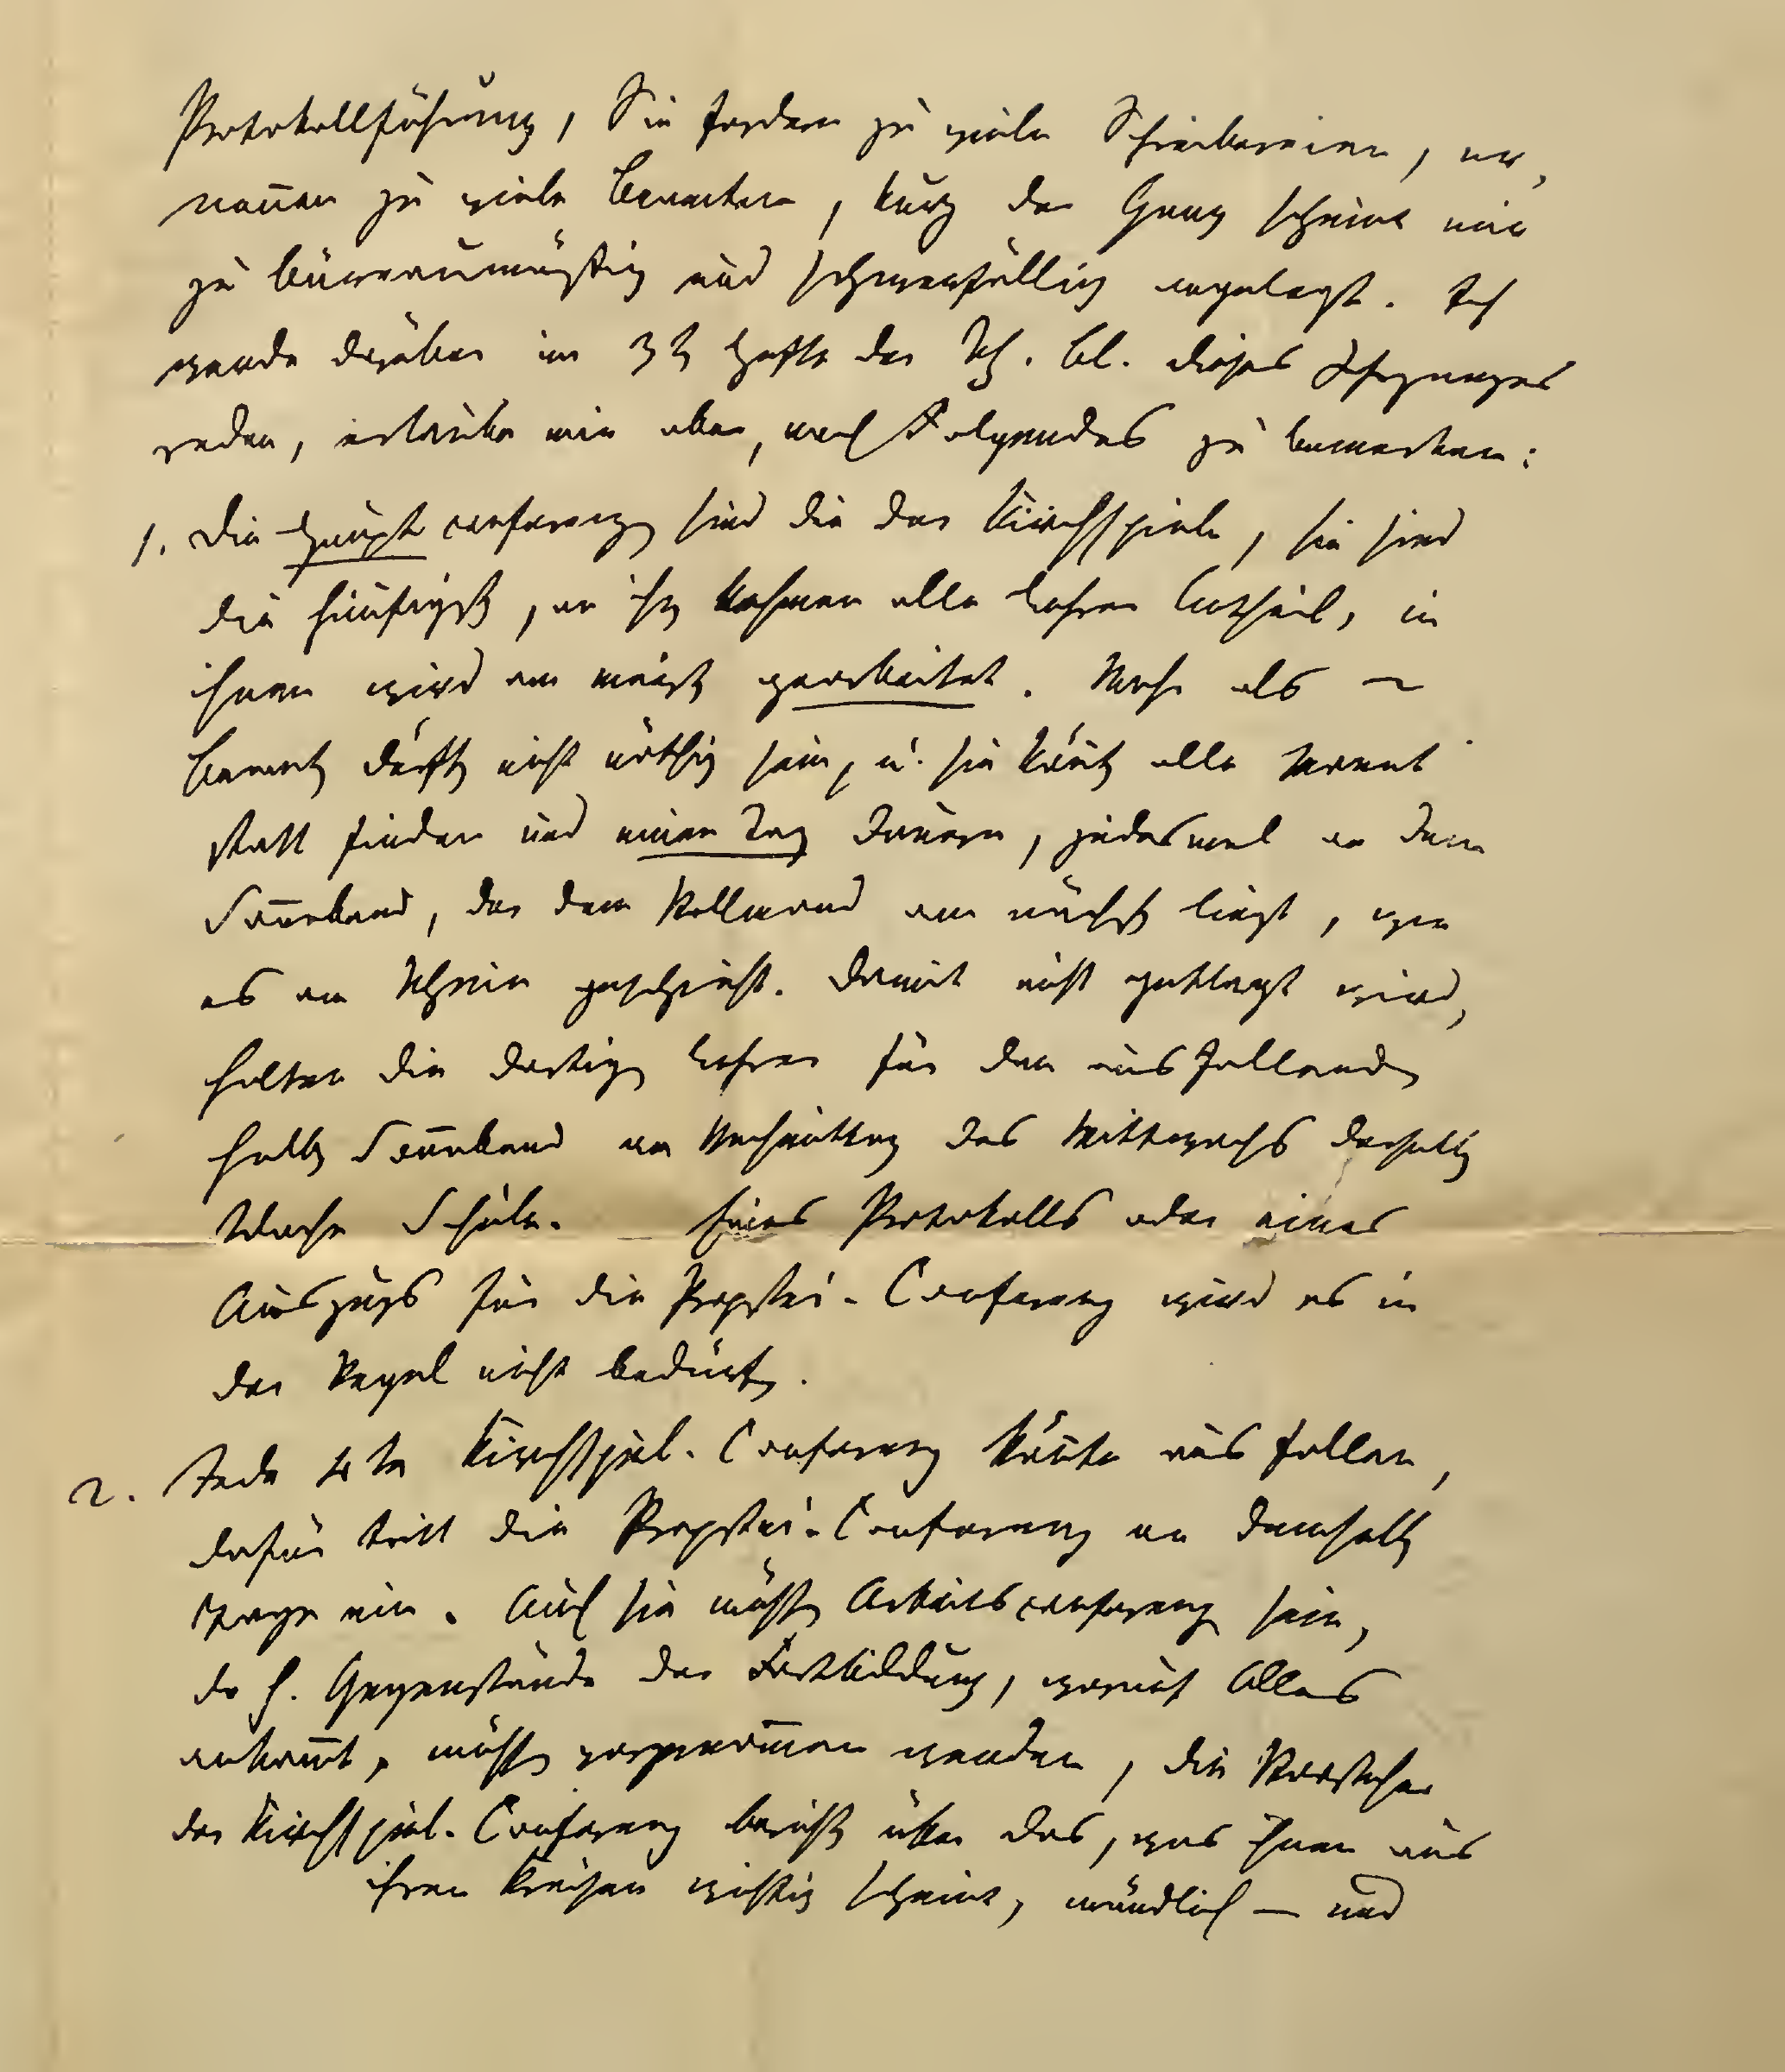 Protokollführung, Sie fordern zu viele Schreibereien, er,
nennen zu viele Beamten, kurz der Gang scheint mir
zu büreaumäßig und schwerfällig angelegt. Ich
werde darüber im 3t Hefte der Rh. Bl. dieses Jahrganges
reden, erlaube mir aber, noch Folgendes zu bemerken:
1. Die Haupt conferenzen sind die der Kirchspiele, sie sind
die häufigsten, an ihnen nehmen alle Lehrer Antheil, in
ihnen wird am meisten gearbeitet. Mehr als 2
Beamten dürften nicht nöthig sein, u. sie könnten alle Monat
statt finden und einen Tag dauern, jedesmal an dem
Sonnabend, der dem Vollmond am nächsten liegt, wie
es am Rhein geschieht. Damit nicht geklagt wird,
halten die dortigen Lehrer für den ausfallenden
halben Sonnabend am Nachmittag des Mittwochs derselben
Woche Schule. Eines Protokolls oder eines
Auszugs für die Propstei-Conferenz wird es in
der Regel nicht bedürfen.
2. Jede 4te Kirchspiel-Conferenz könnte ausfallen,
dafür tritt die Propstei-Conferenz an demselben
Tage ein. Auch sie müßte Arbeitsconferenz sein,
d. h. Gegenstände der Fortbildung, worauf Alles
ankommt, müßten vorgenommen werden, die Vorsteher
der Kirchspiel-Conferenz berichten über das, was ihnen aus
ihren Kreisen wichtig scheint, mündlich — und